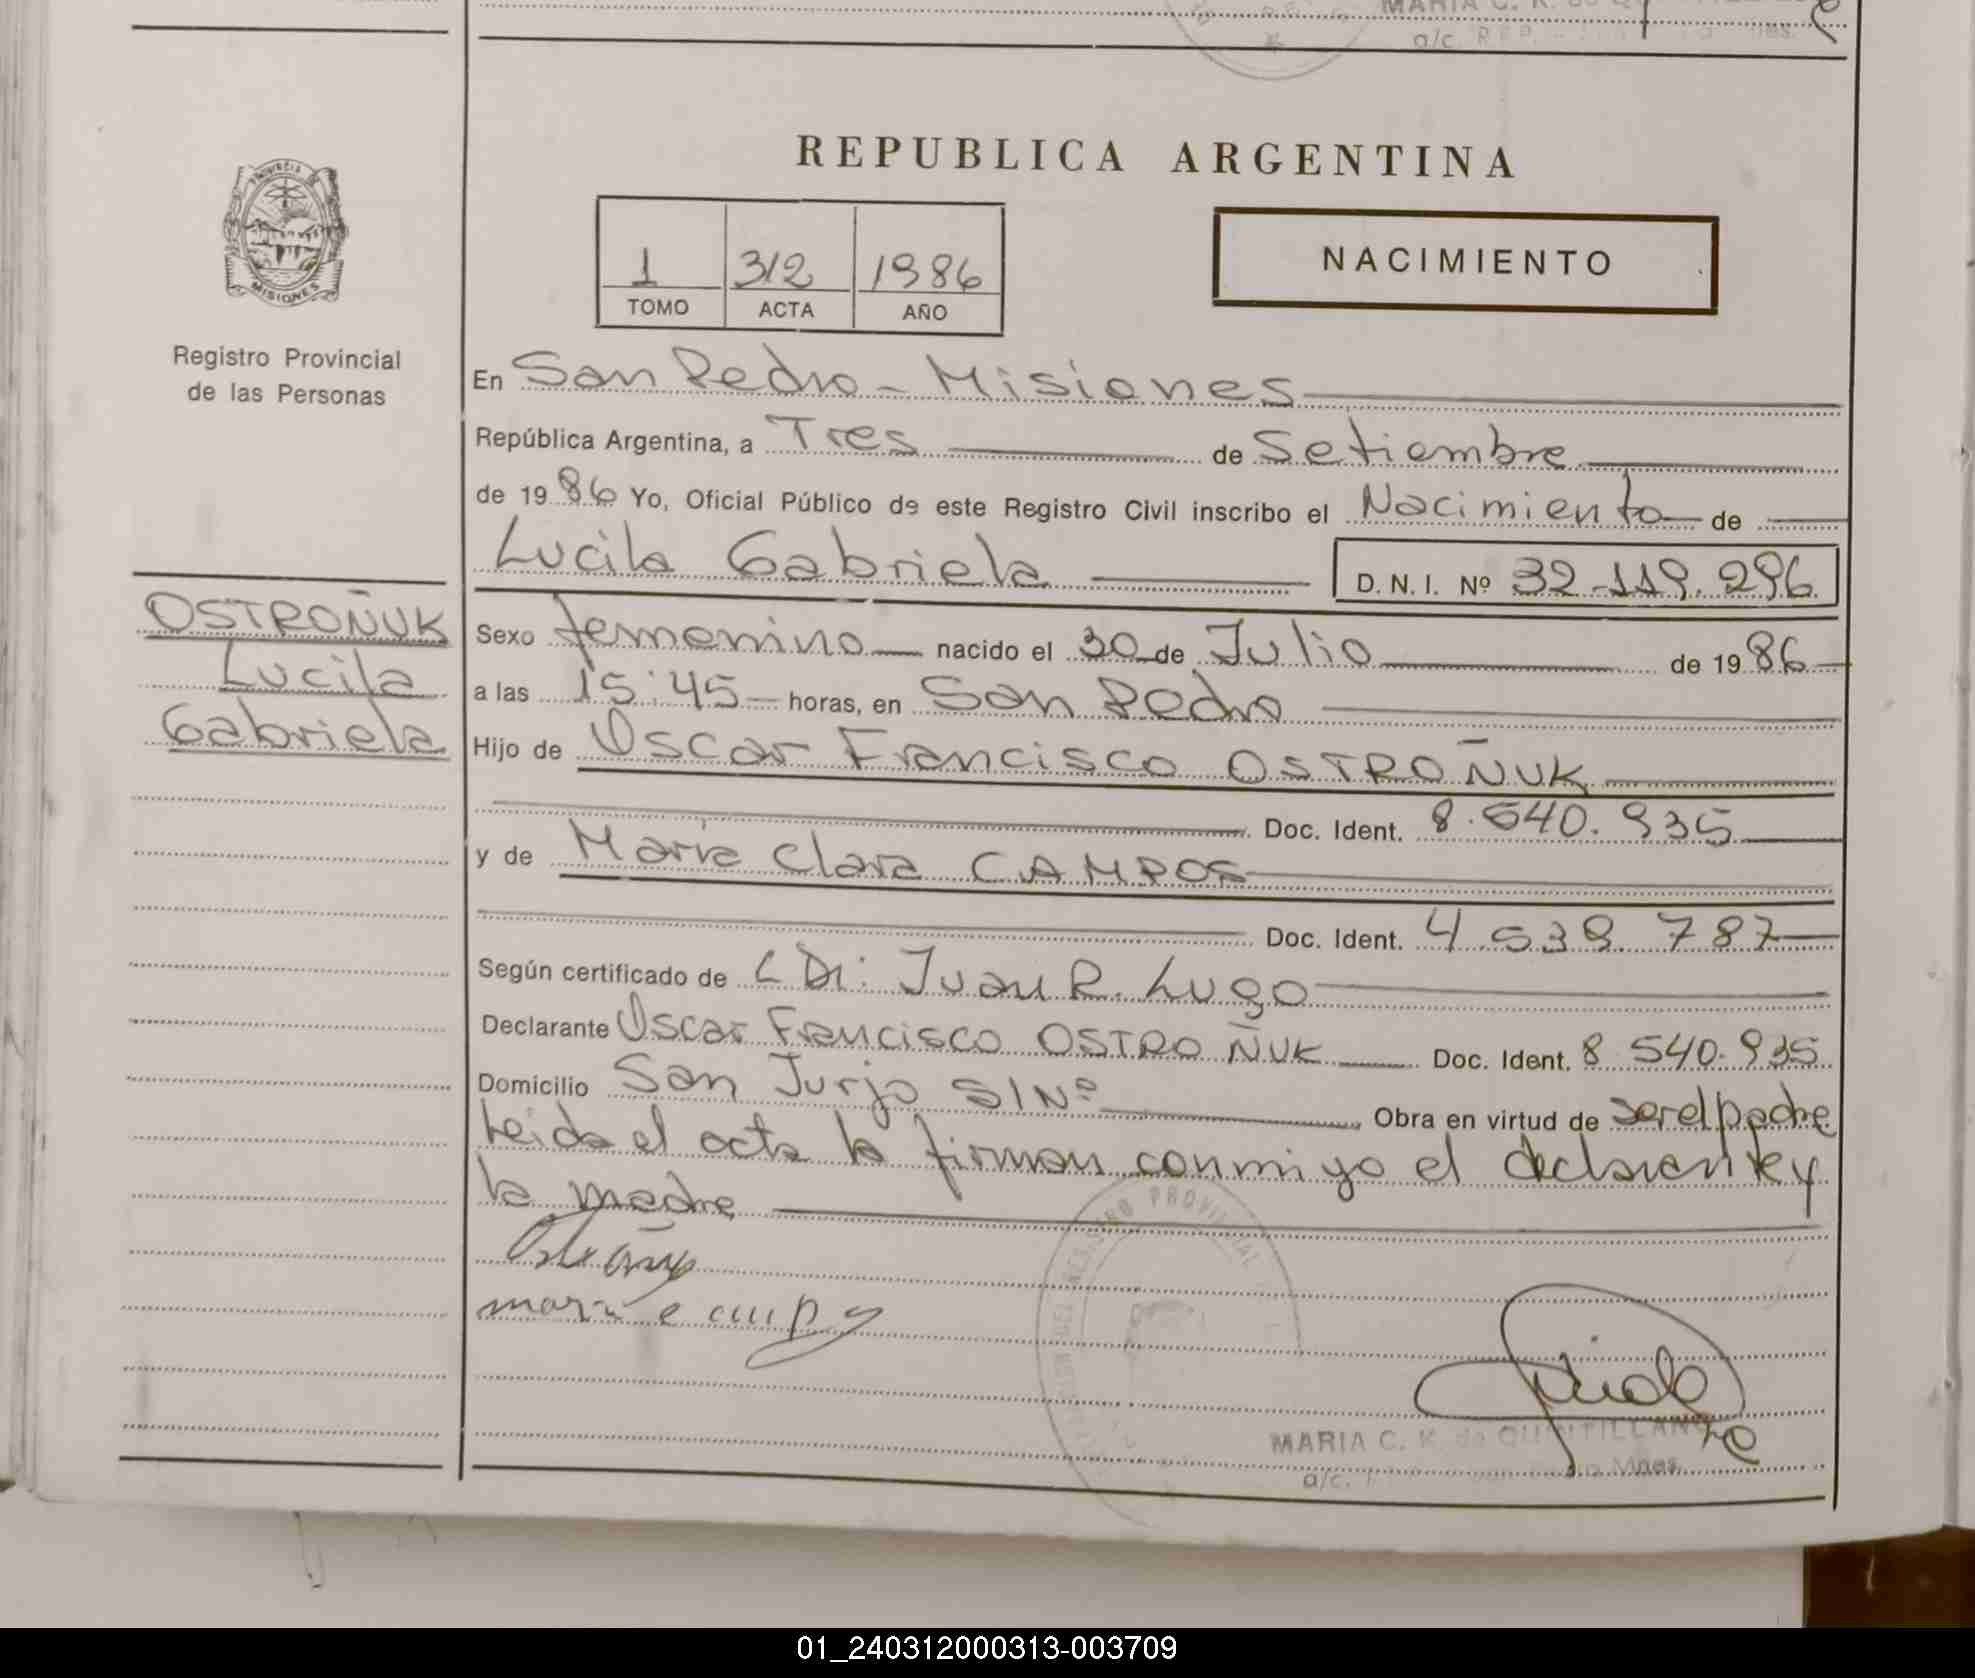 MARIA C. K. de
a/c. REP.
REPUBLICA ARGENTINA
PROVINCIA DE
MISIONES
1 312 1986
TOMO ACTA AÑO
NACIMIENTO
Registro Provincial
de las Personas
En San Pedro - Misiones
República Argentina, a Tres de Setiembre
de 1986 Yo, Oficial Público de este Registro Civil inscribo el Nacimiento de
Lucila Gabriela D. N. I. Nº 32.119.296
OSTROÑUK
Lucila
Gabriela
Sexo femenino nacido el 30 de Julio de 1986
a las 15:45 horas, en San Pedro
Hijo de Oscar Francisco OSTROÑUK
Doc. Ident. 8.540.935
y de María Clara CAMPOS
Doc. Ident. 4.539.787
Según certificado de Dr: Juan R. Lugo
Declarante Oscar Francisco OSTROÑUK Doc. Ident. 8.540.935
Domicilio San Jurjo S/Nº Obra en virtud de ser el padre
Leida el acta la firman conmigo el declarante y
la madre
REGISTRO PROVINCIAL
MARIA C. K. de QUINTILLAN
a/c. Mnes.
01_240312000313-003709